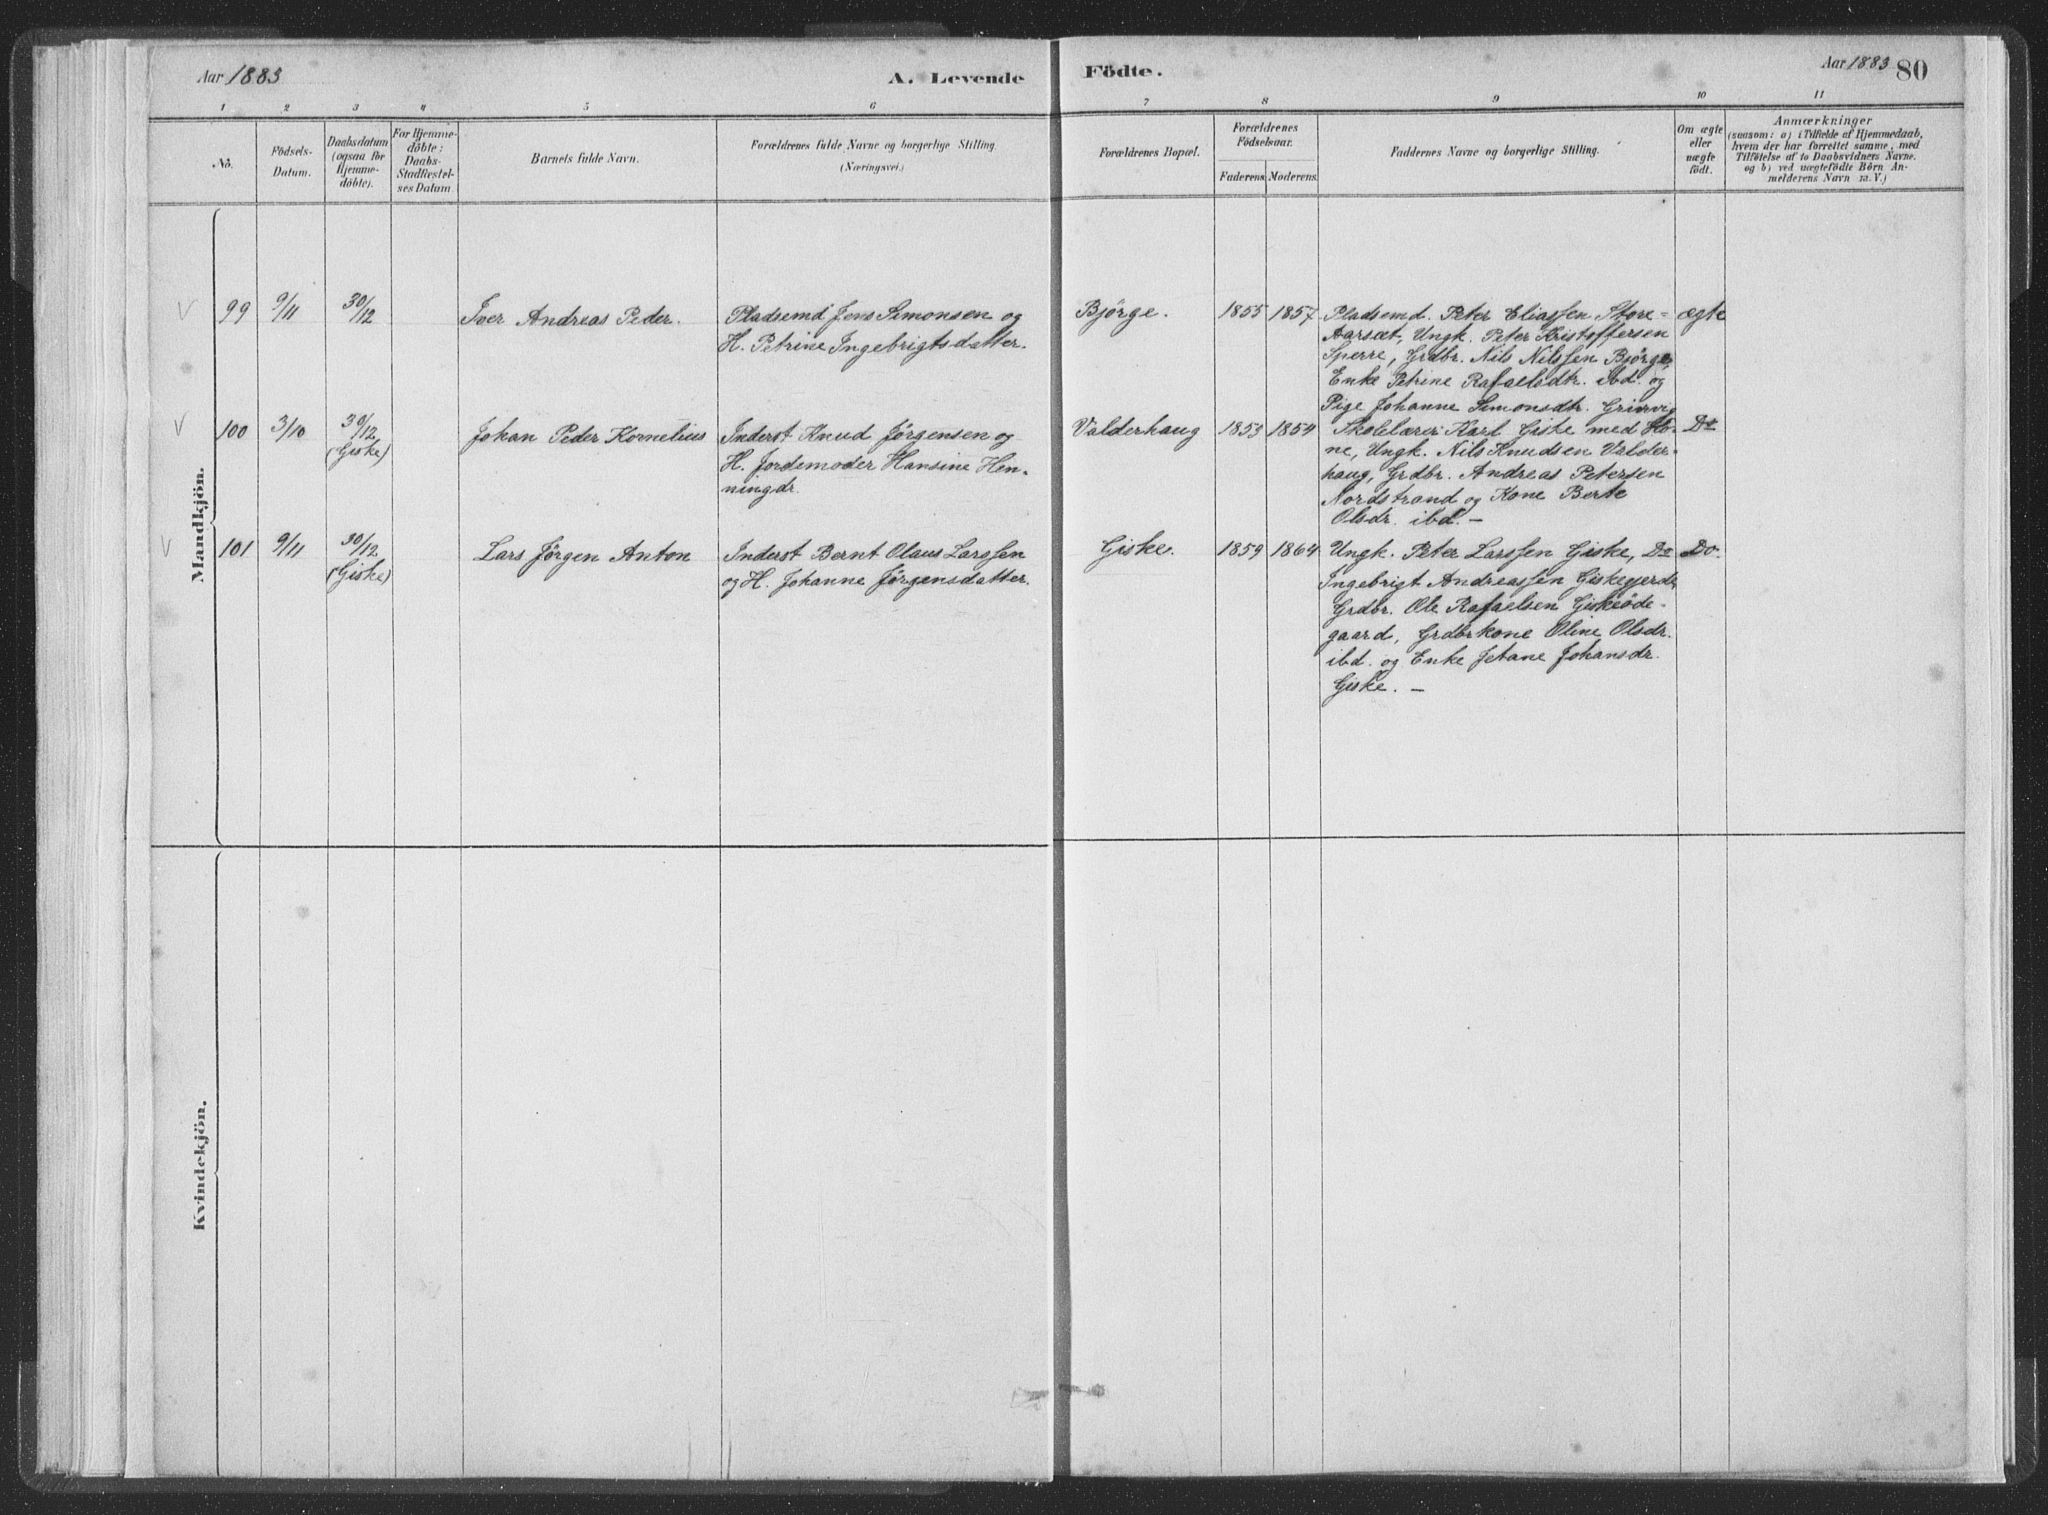 Aar 1883
A. Levende
Födte.
Aar 1883
80
1 2 3 4 5 6 7 8 9 10 11
No.
Födsels-
Datum.
Daabsdatum
(ogsaa for
Hjemme-
döbte).
For Hjemme-
döbte:
Daabs-
Stadfæstel-
ses Datum
Barnets fulde Navn.
Forældrenes fulde Navne og borgerlige Stilling.
(Næringsvei.)
Forældrenes Bopæl.
Forældrenes
Födselsaar.
Faderens.
Moderens.
Faddernes Navne og borgerlige Stilling.
Om ægte
eller
uægte
födt.
Anmærkninger
(saasom: a) i Tilfælde af Hjemmedaab,
hvem der har forrettet samme, med
Tilföielse af to Daabsvidners Navne.
og b) ved uægtefödte Börn An-
melderens Navn m.V.)
Mandkjön.
99
9/11
30/12
Iver Andreas Peder.
Pladsemd Jens Simonsen og
H. Petrine Ingebrigtsdatter.
Bjørge.
1855
1857
Pladsemd. Peter Eliassen Store-
Aarsæt, Ungk. Peter Kristoffersen
Sperre, Grdbr. Nils Nilssen Bjørge,
Enke Petrine Rafaelsdtr. ibd. og
Pige Johanne Simonsdtr.
ægte
100
3/10
30/12
(Giske)
Johan Peder Kornelius
Inderst Knud Jørgensen og
H. Jordemoder Hansine Hen-
ningdr.
Valderhaug
1853
1854
Skolelærer Karl Giske med Ko-
ne, Ungk. Nils Knudsen Valder-
haug, Grdbr. Andreas Petersen
Nordstrand og Kone Berte
Olsdr. ibd. —
Do
101
9/11
30/12
(Giske)
Lars Jørgen Anton
Inderst Bernt Olaus Larssen
og H. Johanne Jørgensdatter.
Giske.
1859
1864
Ungk. Peter Larssen Giske, Do
Ingebrigt Andreassen Giskegjerde,
Grdbr. Ole Rafaelsen Giskeøde-
gaard, Grdbrkone Oline Olsdr.
ibd. og Enke Jetane Johansdr.
Giske. —
Do.
Kvindekjön.